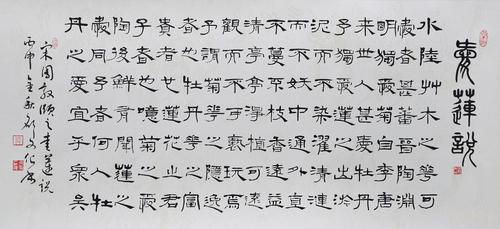 愛蓮說
水陸艸木之華可
愛者甚蕃晉陶淵
明獨愛菊自李唐
来世人甚愛牡丹
予獨愛蓮之出淤
泥而不染濯清漣
而不妖中通外直
不蔓不枝香遠益
清亭亭淨植可遠
觀而不可褻玩焉
予謂菊華之隱逸
者也牡丹華之富
貴者也蓮華之君
子者也噫菊之愛
陶後鮮有聞蓮之
愛同予者何人牡
丹之愛宜乎眾矣
宋周敦頤之愛蓮說
丙申秋